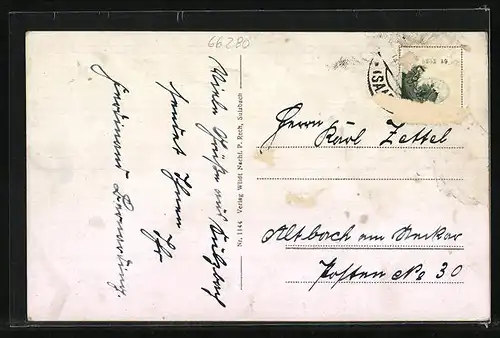 66280
Viele Grüße aus Sulzbach
sendet Ihnen
Ihr
Ferdinand
Nr. 1144 Verlag Wildt Nachf. P. Reck, Sulzbach
Herrn Karl Zettel
Altbach am Neckar
Posten No 30